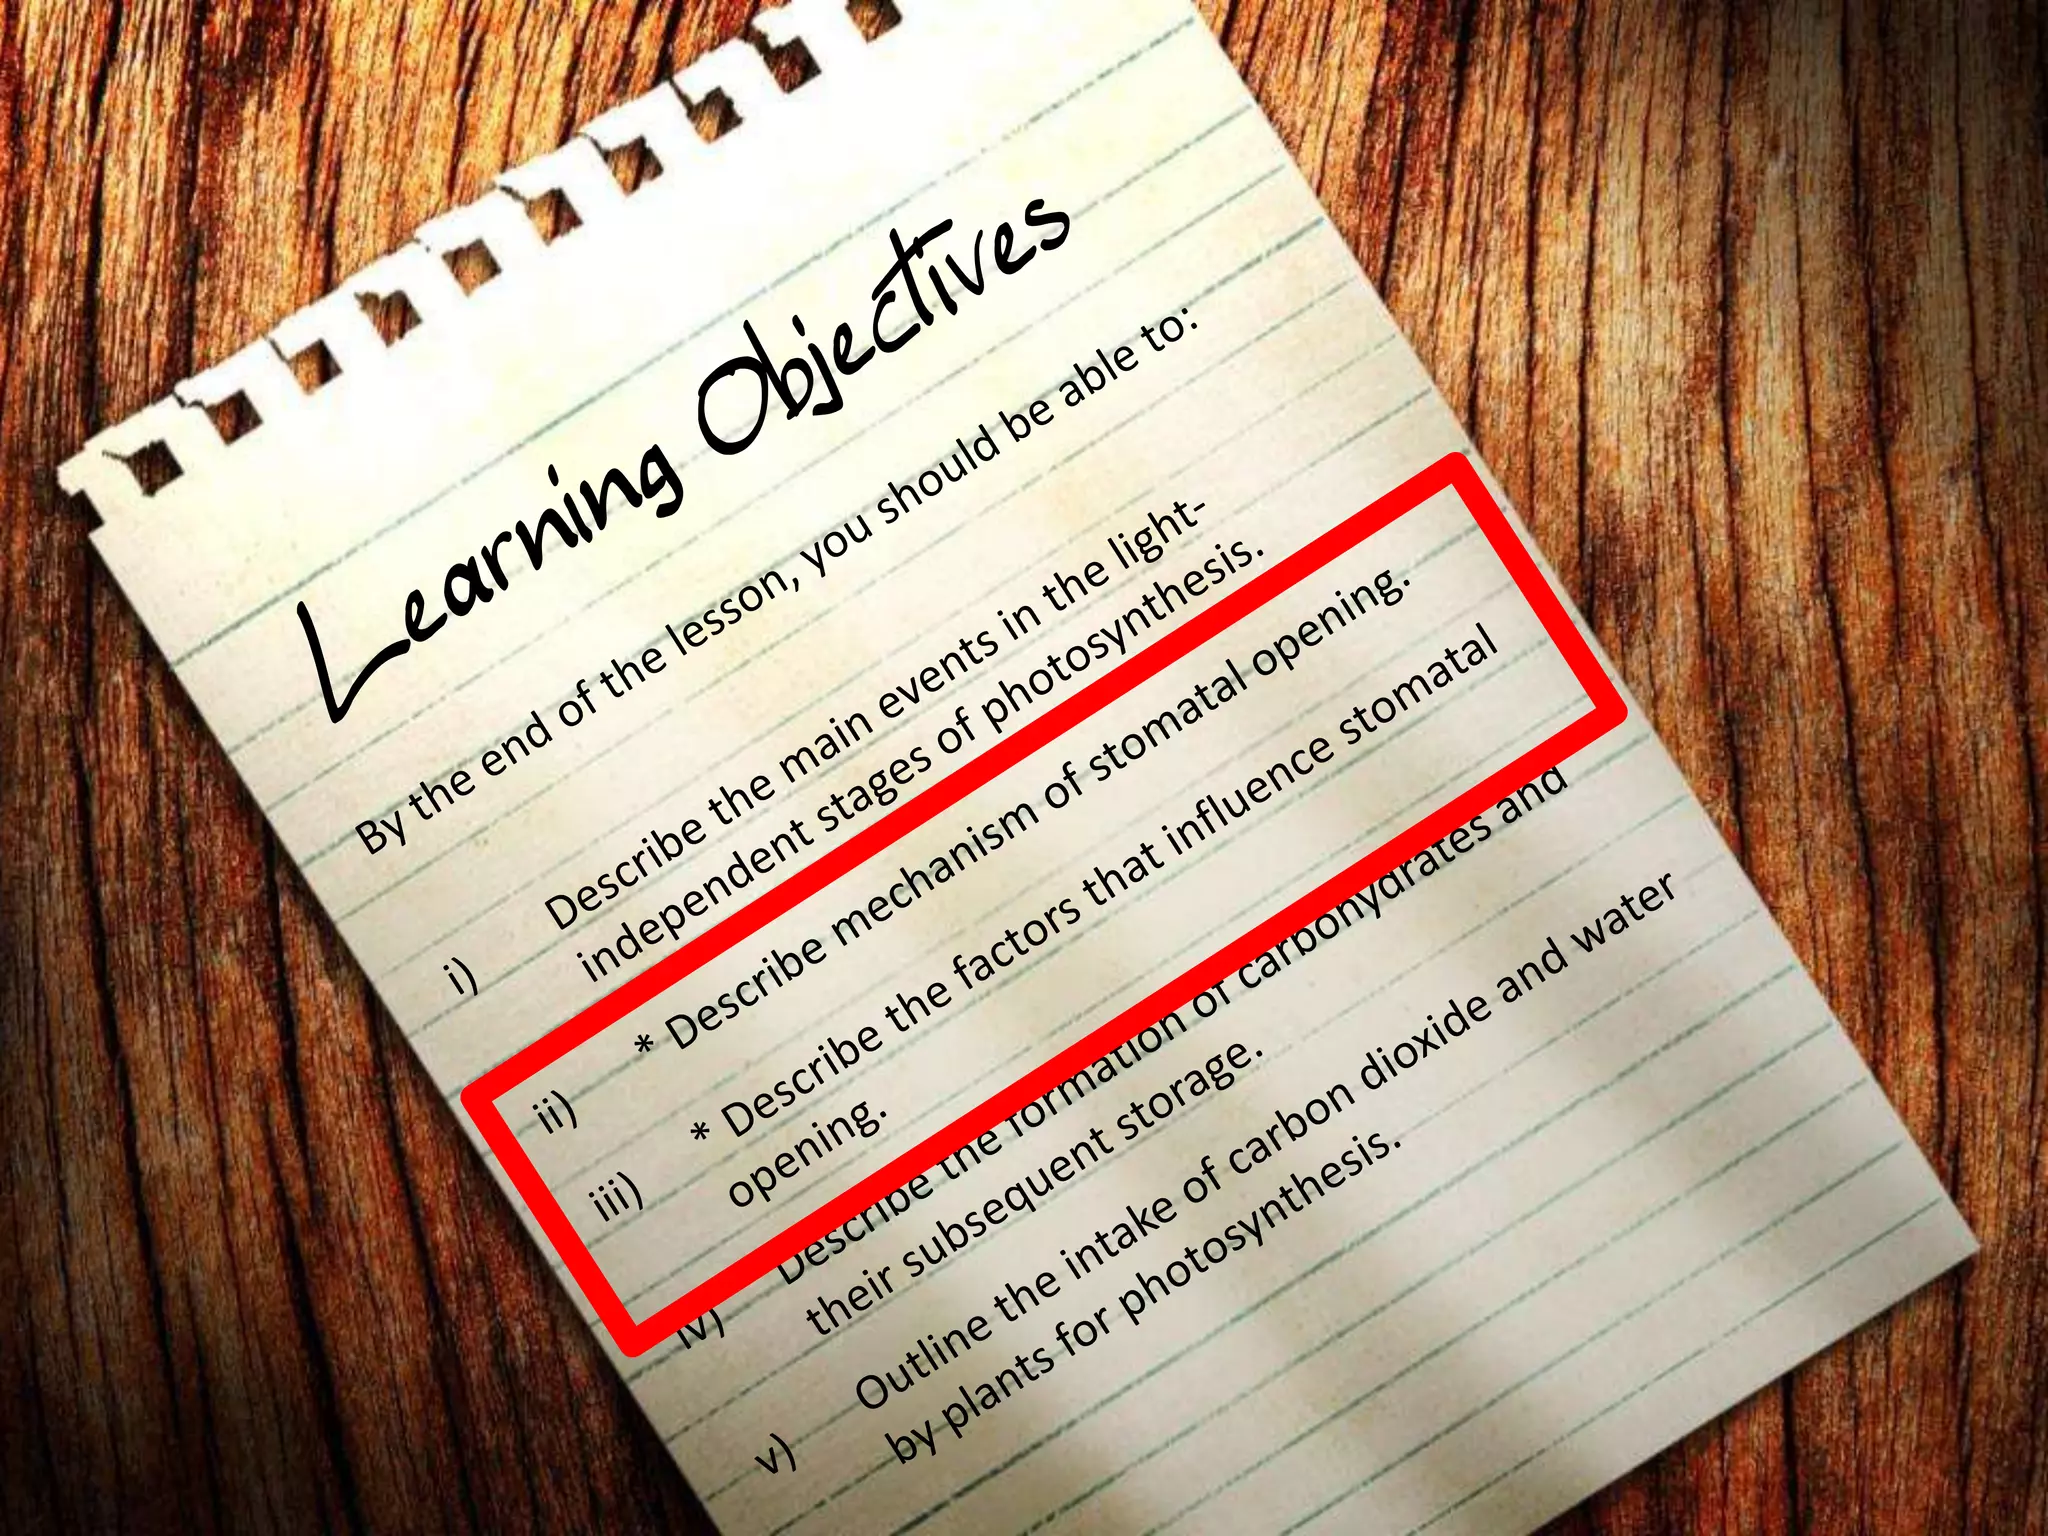 Learning Objectives
By the end of the lesson, you should be able to:
i) Describe the main events in the light-
independent stages of photosynthesis.
ii) * Describe mechanism of stomatal opening.
iii) * Describe the factors that influence stomatal
opening.
iv) Describe the formation of carbohydrates and
their subsequent storage.
v) Outline the intake of carbon dioxide and water
by plants for photosynthesis.